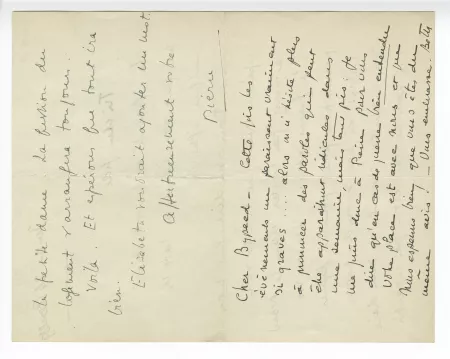 la petite dame. La question du
logement s'arrangera toujours.
Voilà. Et espérons que tout ira
bien.
Elizabeth voudrait ajouter un mot.
Affectueusement votre
Pierre
Cher Bypeed - Cette fois les
évènements me paraissent vraiment
si graves .... alors n'hésite plus
à prononcer des paroles qui peut
être apparaîtront ridicules dans
une semaine, mais tant pis. Je
me joins donc à Pierre pour vous
dire qu'en cas de guerre bien entendu
votre place est avec nous et que
nous espérons bien que vous êtes du
même avis ! - Vous embrasse.